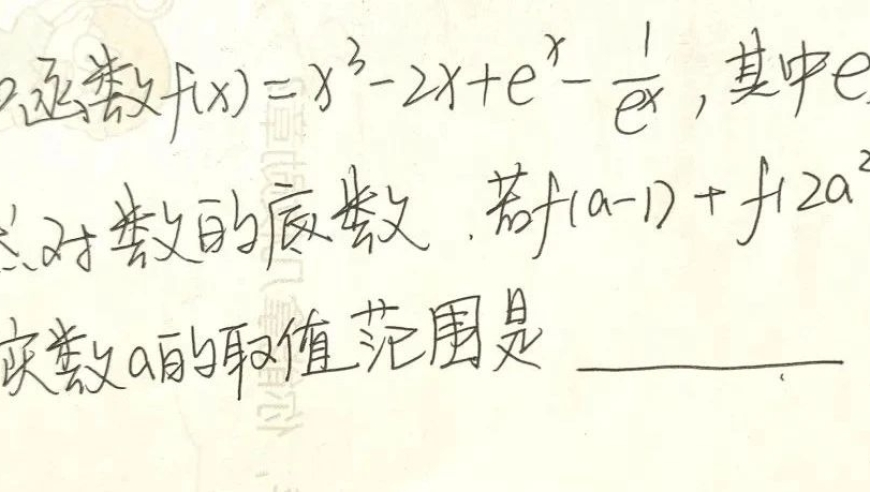 函数f(x)=x³-2x+eˣ-1/eˣ,其中e
对数的底数.若f(a-1)+f(2a²
实数a的取值范围是______